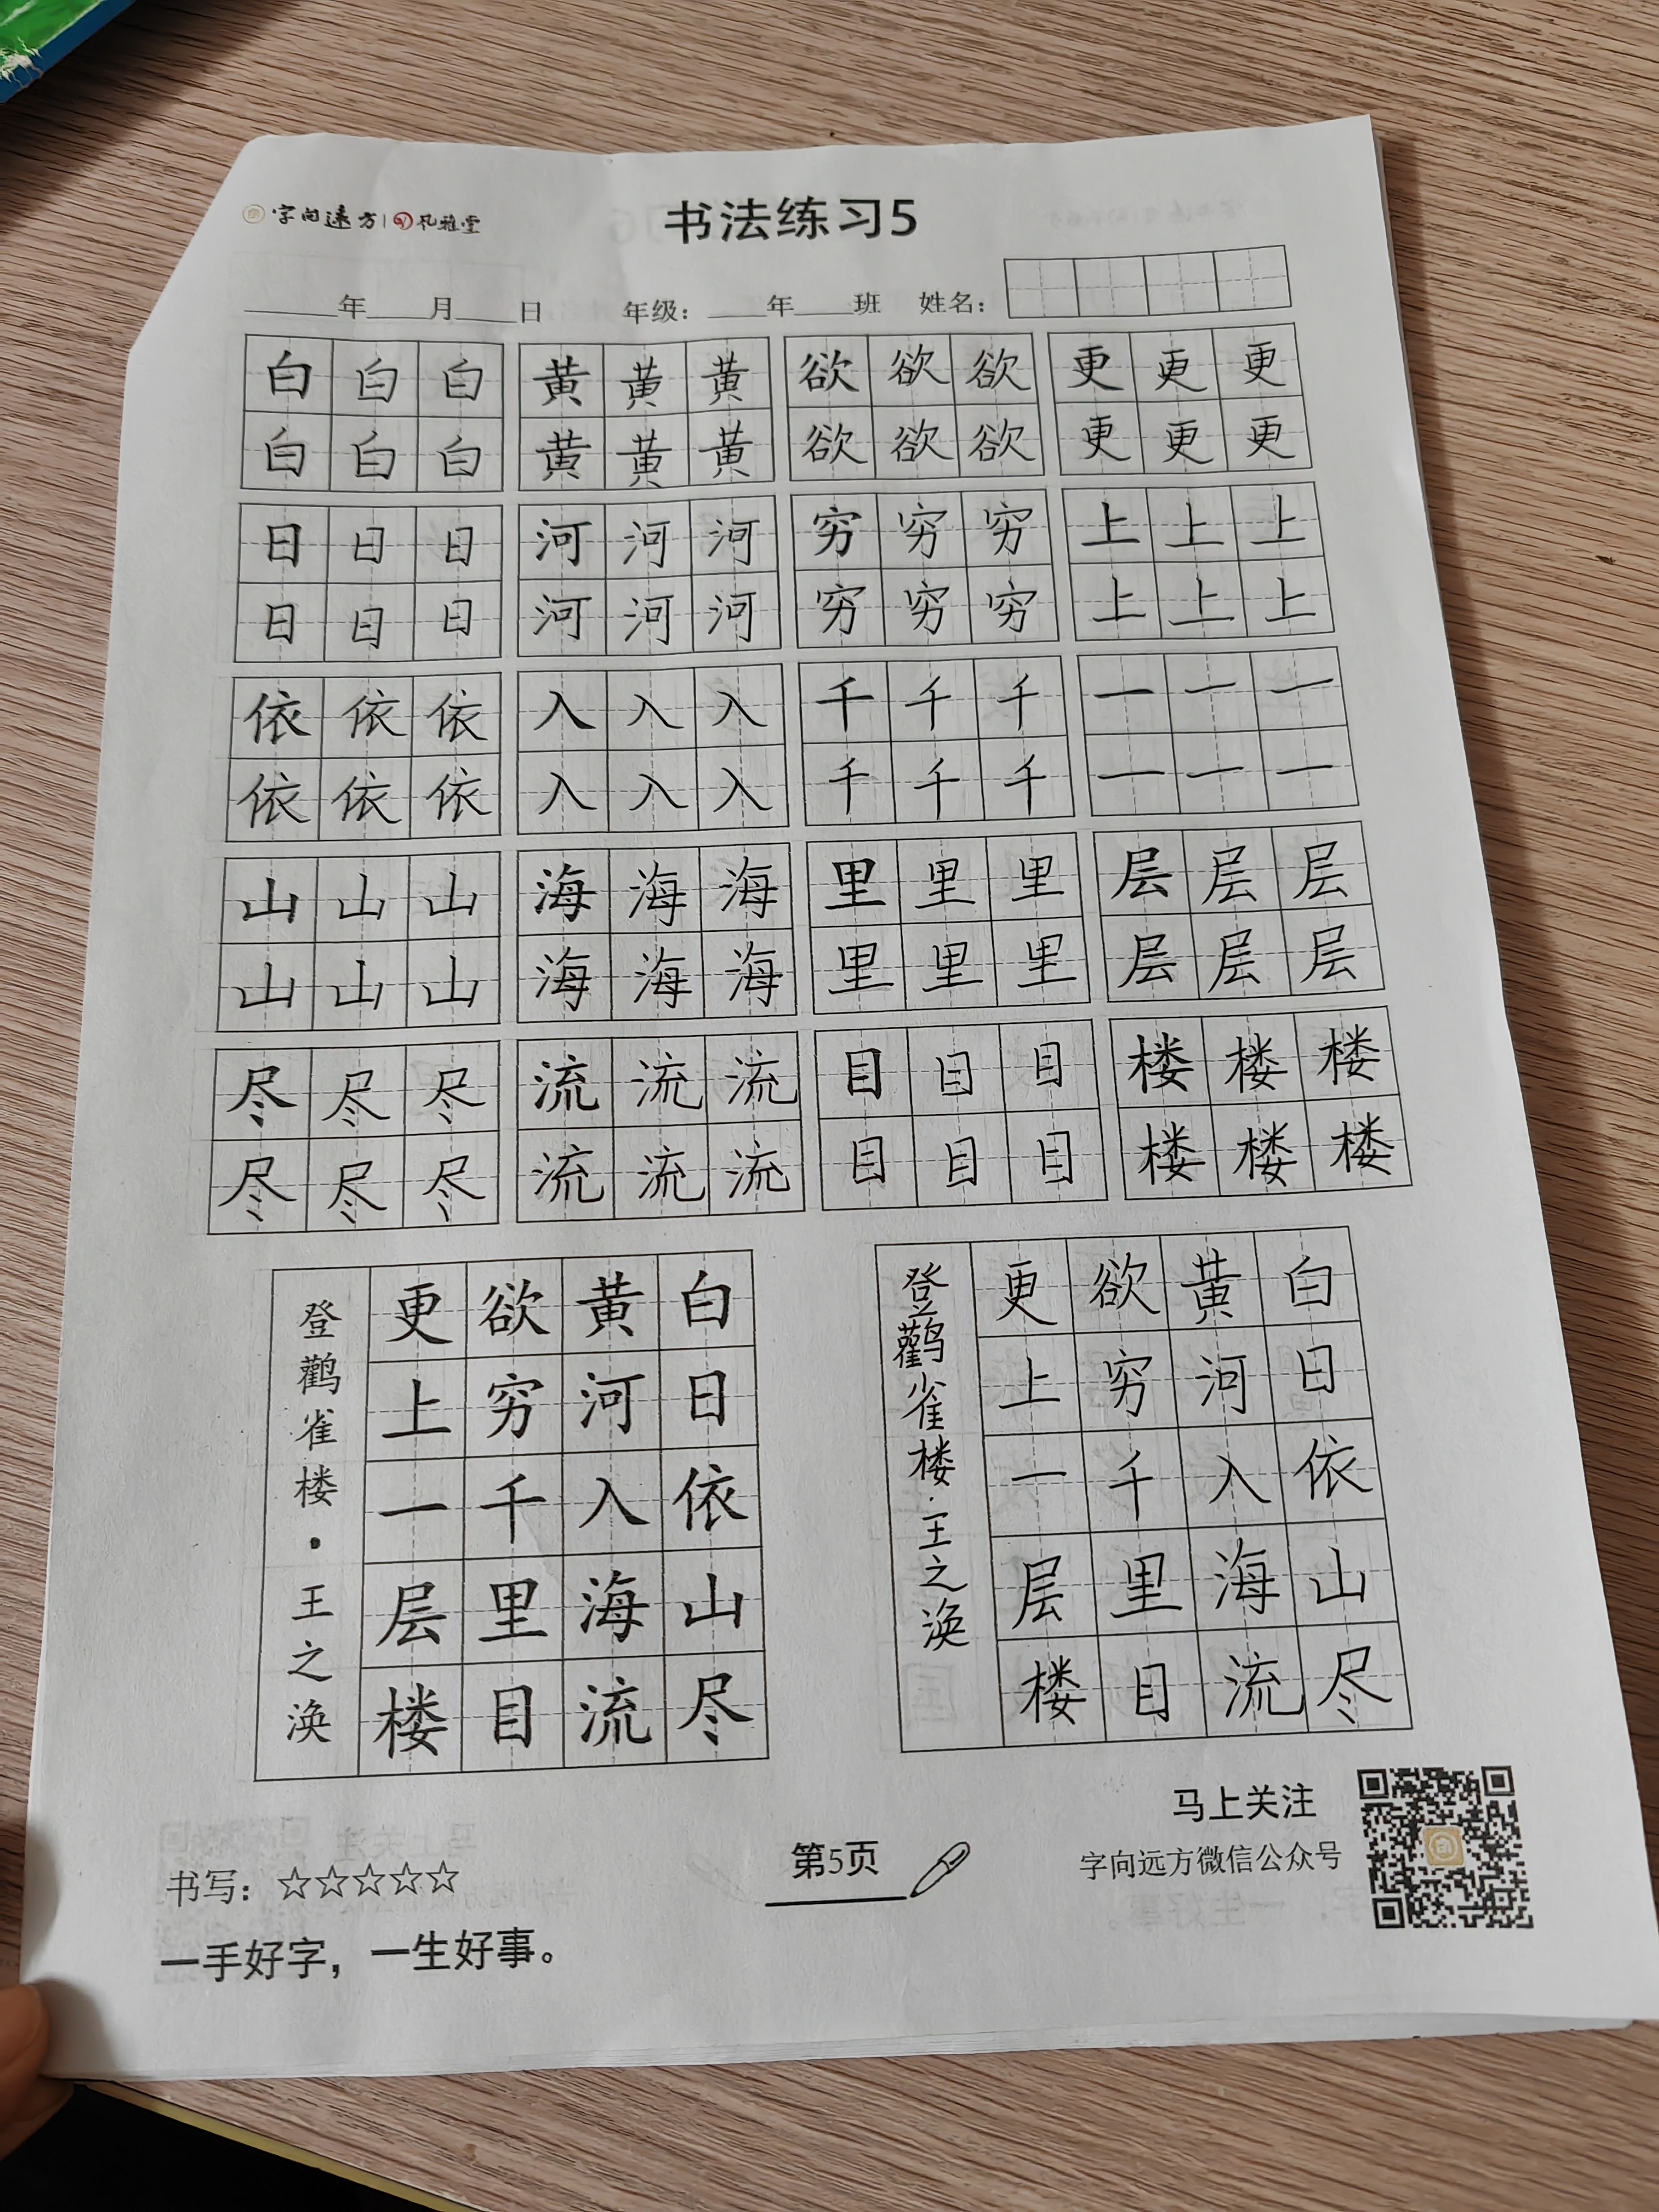 字向远方 | 孔雅堂
书法练习5
年 月 日 年级： 年 班 姓名：
白白白 黄黄黄 欲欲欲 更更更
白白白 黄黄黄 欲欲欲 更更更
日日日 河河河 穷穷穷 上上上
日日日 河河河 穷穷穷 上上上
依依依 入入入 千千千 一一一
依依依 入入入 千千千 一一一
山山山 海海海 里里里 层层层
山山山 海海海 里里里 层层层
尽尽尽 流流流 目目目 楼楼楼
尽尽尽 流流流 目目目 楼楼楼
白日依山尽
黄河入海流
欲穷千里目
更上一层楼
登鹳雀楼·王之涣
白日依山尽
黄河入海流
欲穷千里目
更上一层楼
登鹳雀楼·王之涣
书写：☆☆☆☆☆
一手好字，一生好事。
第5页
马上关注
字向远方微信公众号